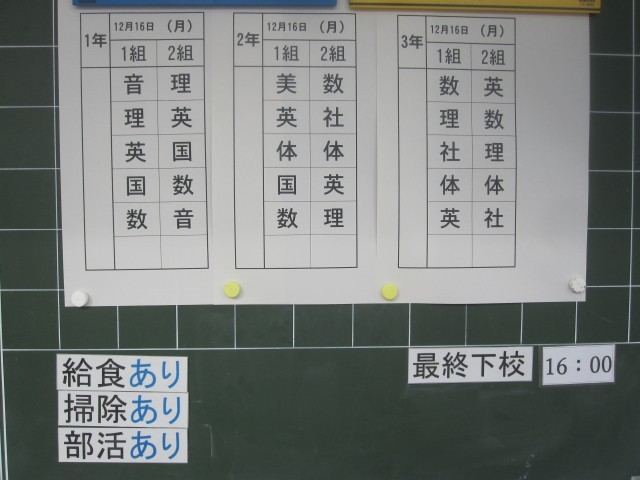 1年 12月16日 (月)
1組 2組
音 理
理 英
英 国
国 数
数 音
2年 12月16日 (月)
1組 2組
美 数
英 社
体 体
国 英
数 理
3年 12月16日 (月)
1組 2組
数 英
理 数
社 理
体 体
英 社
給食あり
掃除あり
部活あり
最終下校 16:00